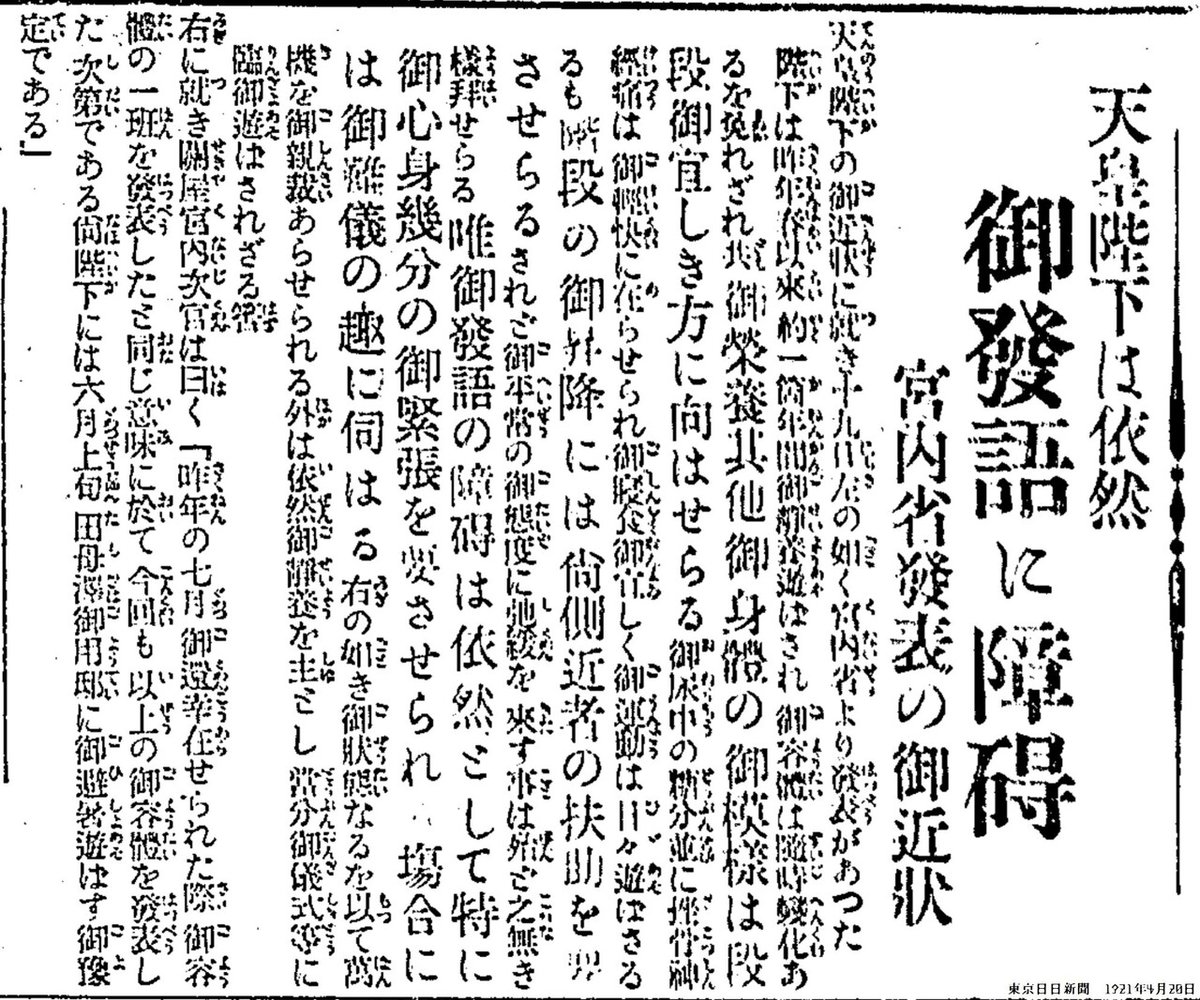 天皇陛下は依然
御發語に障碍
宮内省發表の御近狀
天皇陛下の御近狀に就き十九日左の如く宮内省より發表があつた
陛下は昨年春以來約一箇年間御靜養遊ばされ御容體は隨時變化あ
るを免れざれ共御榮養其他御身體の御模樣は段
段御宜しき方に向はせらる御尿中の糖分並に坐骨神
經痛は御輕快に在らせられ御寢食御宜しく御運動は日々遊ばさる
るも階段の御昇降には尙側近者の扶助を要
させらるされど御平常の御態度に弛緩を來す事は殆ど之無き
樣拜せらる唯御發語の障碍は依然として特に
御心身幾分の御緊張を要させられ 塲合に
は御難儀の趣に伺はる右の如き御狀態なるを以て萬
機を御親裁あらせられる外は依然御靜養を主とし當分御儀式等に
臨御遊はされざる筈
右に就き關屋宮内次官は曰く「昨年の七月御還幸在せられた際御容
體の一班を發表したと同じ意味に於て今回も以上の御容體を發表し
た次第である尙陛下には六月上旬田母澤御用邸に御避暑遊はす御豫
定である」
東京日日新聞 1921年4月20日